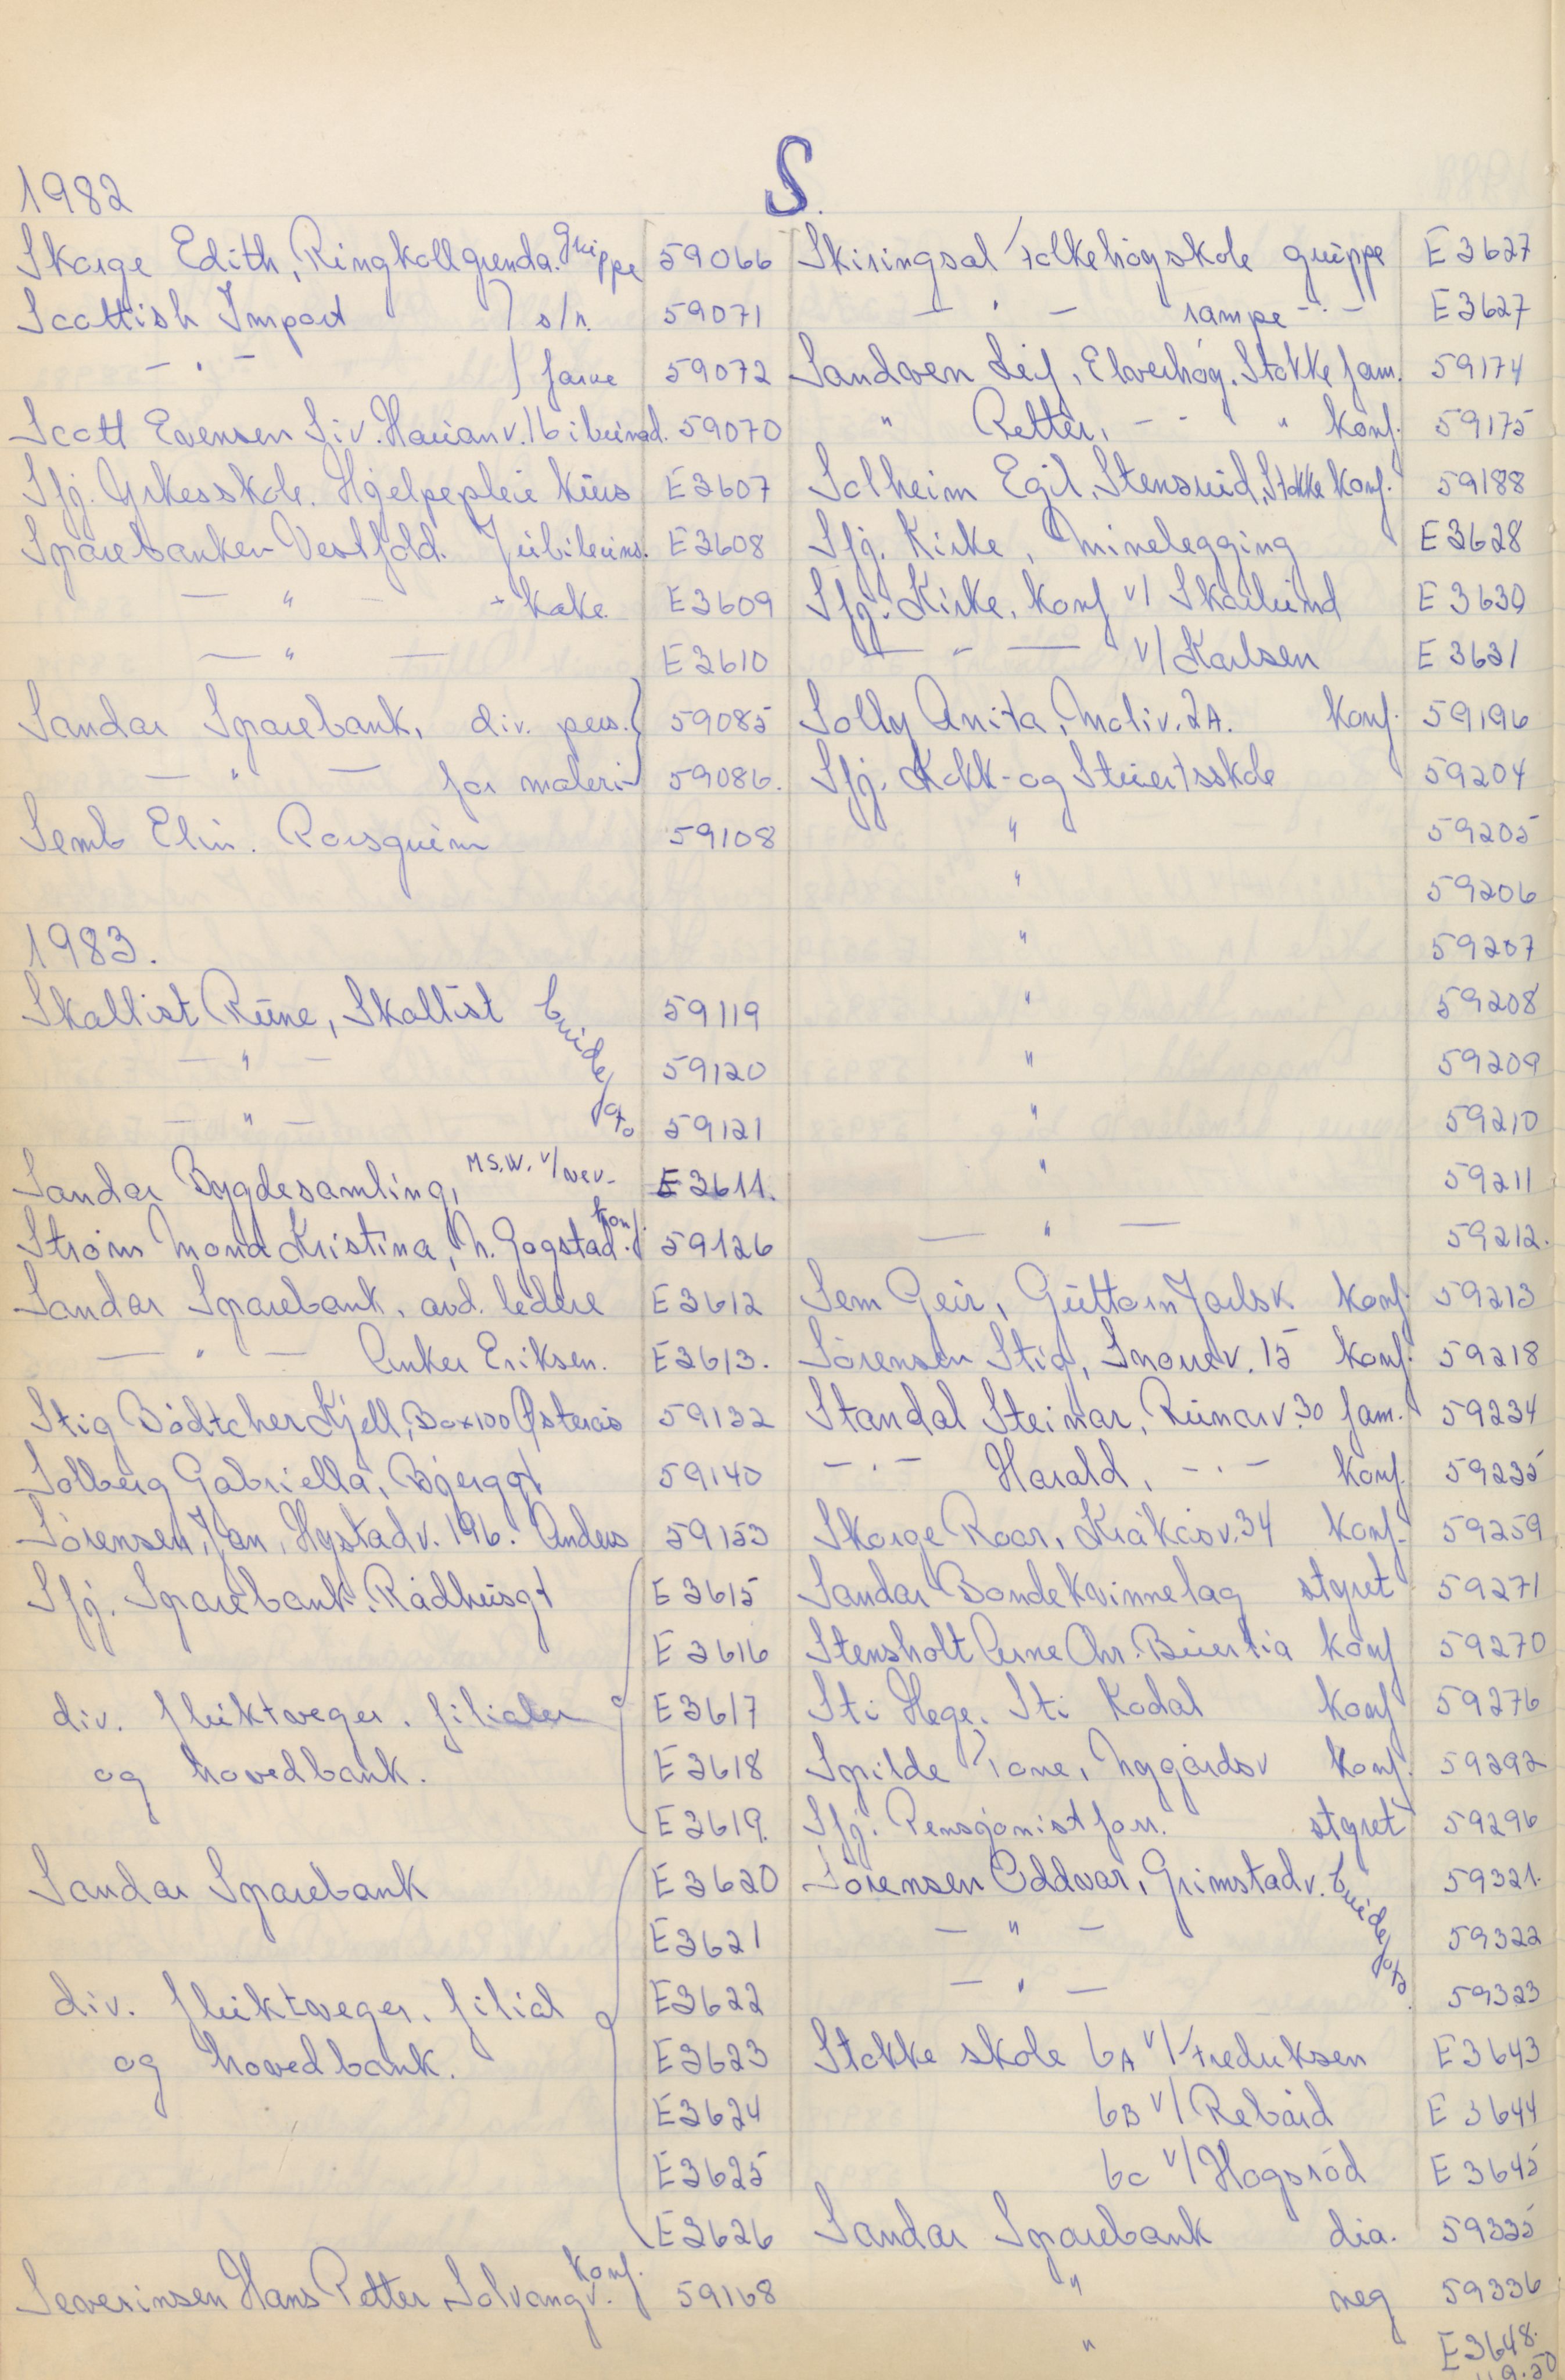 S.
1982
Skorge Edith, Ringkollgrenda. Gruppe 59066
Scottish Import s/h. 59071
— " — farve 59072
Scott Evensen Siv. Havanv. 16 i brimd. 59070
Sfj. Yrkesskole. Hjelpepleie kurs E3607
Sparebanken Vestfold. Jubileums. E3608
— " — + kake. E3609
— " — E3610
Sandar Sparebank, div. pers. 59085
— " — for maleri 59086.
Semb Elin. Ravsgueim 59108
1983.
Skallist Rune, Skallist brudefoto 59119
— " — 59120
— " — 59121
Sandar Bygdesamling, M.S.W. v/ E3611.
Strøm Mona Kristina, N. Gogstad. konf. 59126
Sandar Sparebank. avd. ledere E3612
— " — Anker Eriksen. E3613.
Stig Bödtcher Kjell, Box 100 Østerås 59132
Solberg Gabriella, Bjerggt 59140
Sörensen, Jan, Hystadv. 196. Anders 59153
Sfj. Sparebank. Rådhusgt E3615
E3616
div. fluktveger. filialer E3617
og hovedbank. E3618
E3619.
Sandar Sparebank E3620
E3621
div. fluktveger. filial E3622
og hovedbank. E3623
E3624
E3625
E3626
Severinsen Hans Petter Solvangv. konf. 59168
Skiringsal Folkehögskole gruppe E3627
— " — rampe — " — E3627
Sandven Leif, Elverhöy. Stokke fam. 59174
" Petter, — " — " konf. 59175
Solheim Egil, Stensrud, Stokke konf. 59188
Sfj. Kirke, minelegging E3628
Sfj. Kirke, konf v/ Skarlund E3630
— " — v/ Karlsen E3631
Solly Anita, Moliv. 2A. konf. 59196
Sfj. Kokk- og Stuertsskole 59204
" 59205
" 59206
" 59207
" 59208
" 59209
" 59210
" 59211
— " — 59212.
Sem Geir, Guttorm Jarlsv konf. 59213
Sörensen Stig, Snorrev. 15 konf. 59218
Standal Steinar, Runarv. 30 fam. 59234
— " — Harald, — " — konf. 59235
Skorge Roar, Kråkåsv. 34 konf. 59259
Sandar Bondekvinnelag styret 59271
Stensholt Arne Chr. Buerlia konf 59270
Sti Hege. Sti Kodal konf 59276
Spilde Tone, Nygårdsv konf. 59292
Sfj. Pensjonistforr. styret 59296
Sörensen Oddvar, Grimstadv. brudefoto. 59321.
— " — 59322
— " — 59323
Stokke skole 6A v/ Fredriksen E3643
6B v/ Rebård E3644
6C v/ Hogsröd E3645
Sandar Sparebank dia. 59335
" neg 59336
" E3648.